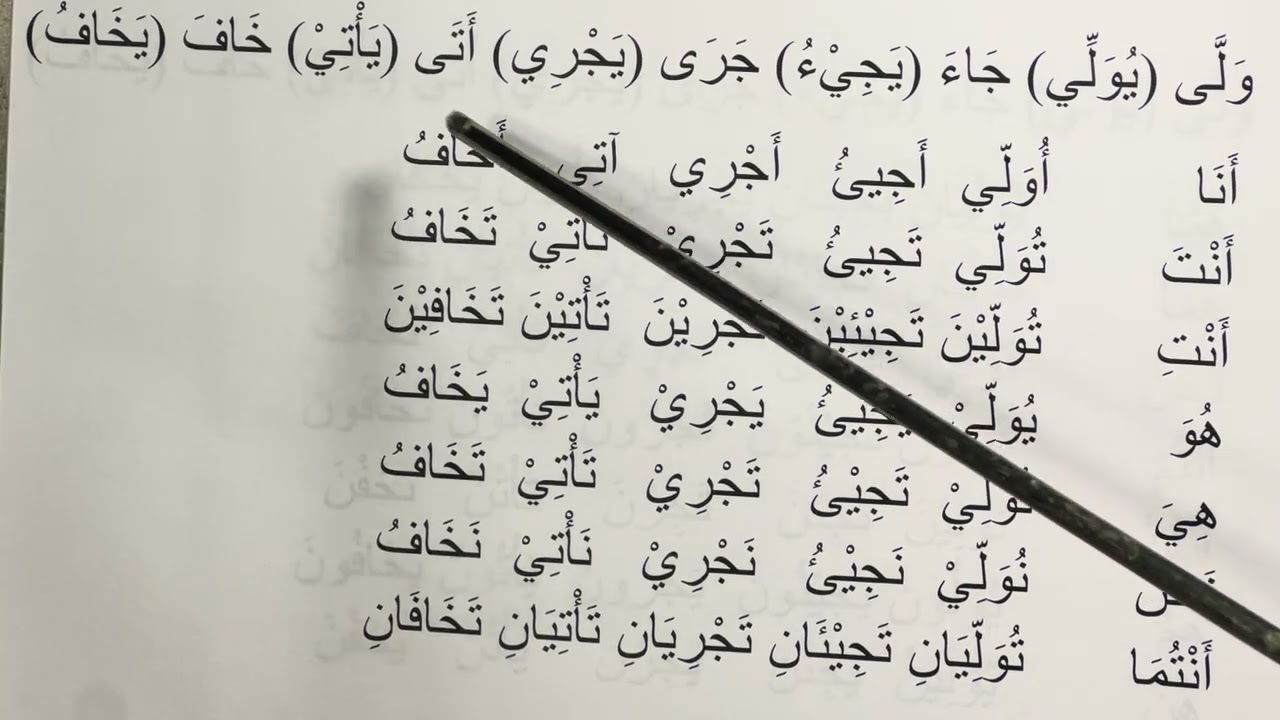 وَلَّى (يُوَلِّي) جَاءَ (يَجِيْءُ) جَرَى (يَجْرِي) أَتَى (يَأْتِيْ) خَافَ (يَخَافُ)
أَنَا أُوَلِّي أَجِيئُ أَجْرِي آتِي أَخَافُ
أَنْتَ تُوَلِّي تَجِيئُ تَجْرِيْ تَأْتِيْ تَخَافُ
أَنْتِ تُوَلِّيْنَ تَجِيْئِيْنَ تَجْرِيْنَ تَأْتِيْنَ تَخَافِيْنَ
هُوَ يُوَلِّيْ يَجِيئُ يَجْرِيْ يَأْتِيْ يَخَافُ
هِيَ تُوَلِّيْ تَجِيْئُ تَجْرِيْ تَأْتِيْ تَخَافُ
نُوَلِّيْ نَجِيْئُ نَجْرِيْ نَأْتِيْ نَخَافُ
أَنْتُمَا تُوَلِّيَانِ تَجِيْئَانِ تَجْرِيَانِ تَأْتِيَانِ تَخَافَانِ